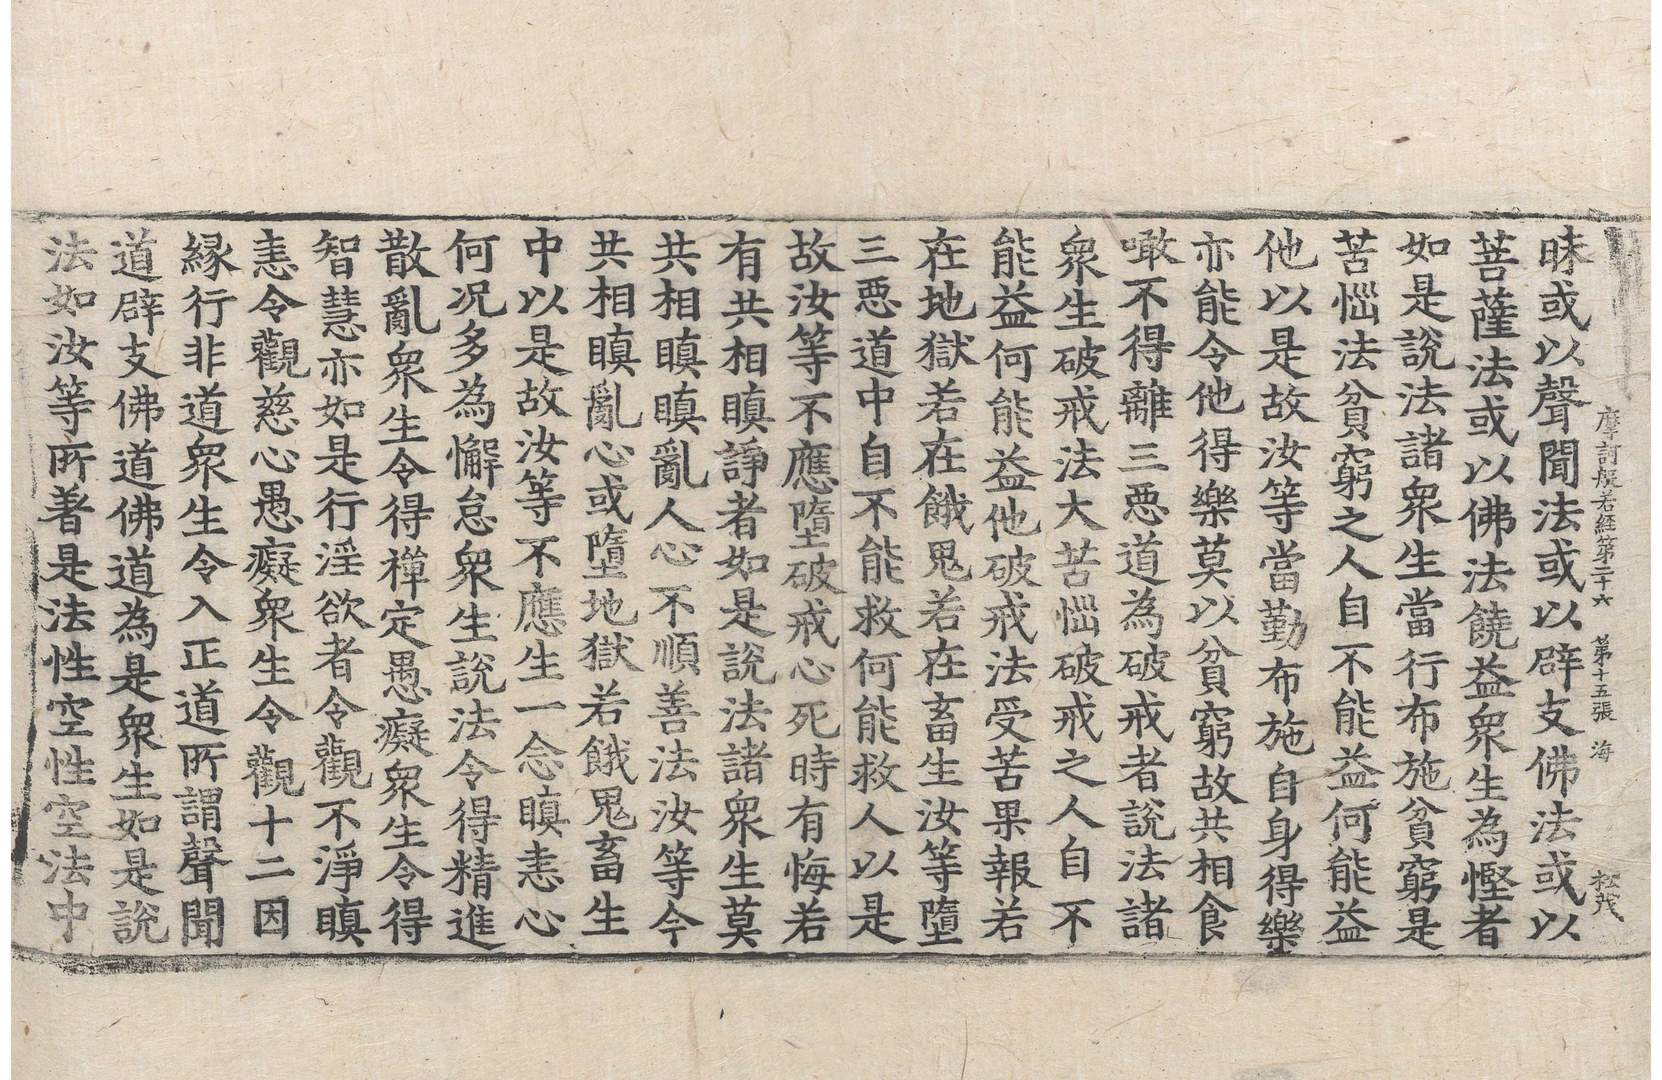 摩訶般若經第二十六 第十五張 海 松茂
昧或以聲聞法或以辟支佛法或以
菩薩法或以佛法饒益衆生為慳者
如是說法諸衆生當行布施貧窮是
苦惱法貧窮之人自不能益何能益
他以是故汝等當勤布施自身得樂
亦能令他得樂莫以貧窮故共相食
噉不得離三惡道為破戒者說法諸
衆生破戒法大苦惱破戒之人自不
能益何能益他破戒法受苦果報若
在地獄若在餓鬼若在畜生汝等墮
三惡道中自不能救何能救人以是
故汝等不應墮破戒心死時有悔若
有共相瞋諍者如是說法諸衆生莫
共相瞋瞋亂人心不順善法汝等今
共相瞋亂心或墮地獄若餓鬼畜生
中以是故汝等不應生一念瞋恚心
何況多為懈怠衆生說法令得精進
散亂衆生令得禪定愚癡衆生令得
智慧亦如是行淫欲者令觀不淨瞋
恚令觀慈心愚癡衆生令觀十二因
緣行非道衆生令入正道所謂聲聞
道辟支佛道佛道為是衆生如是說
法如汝等所著是法性空性空法中